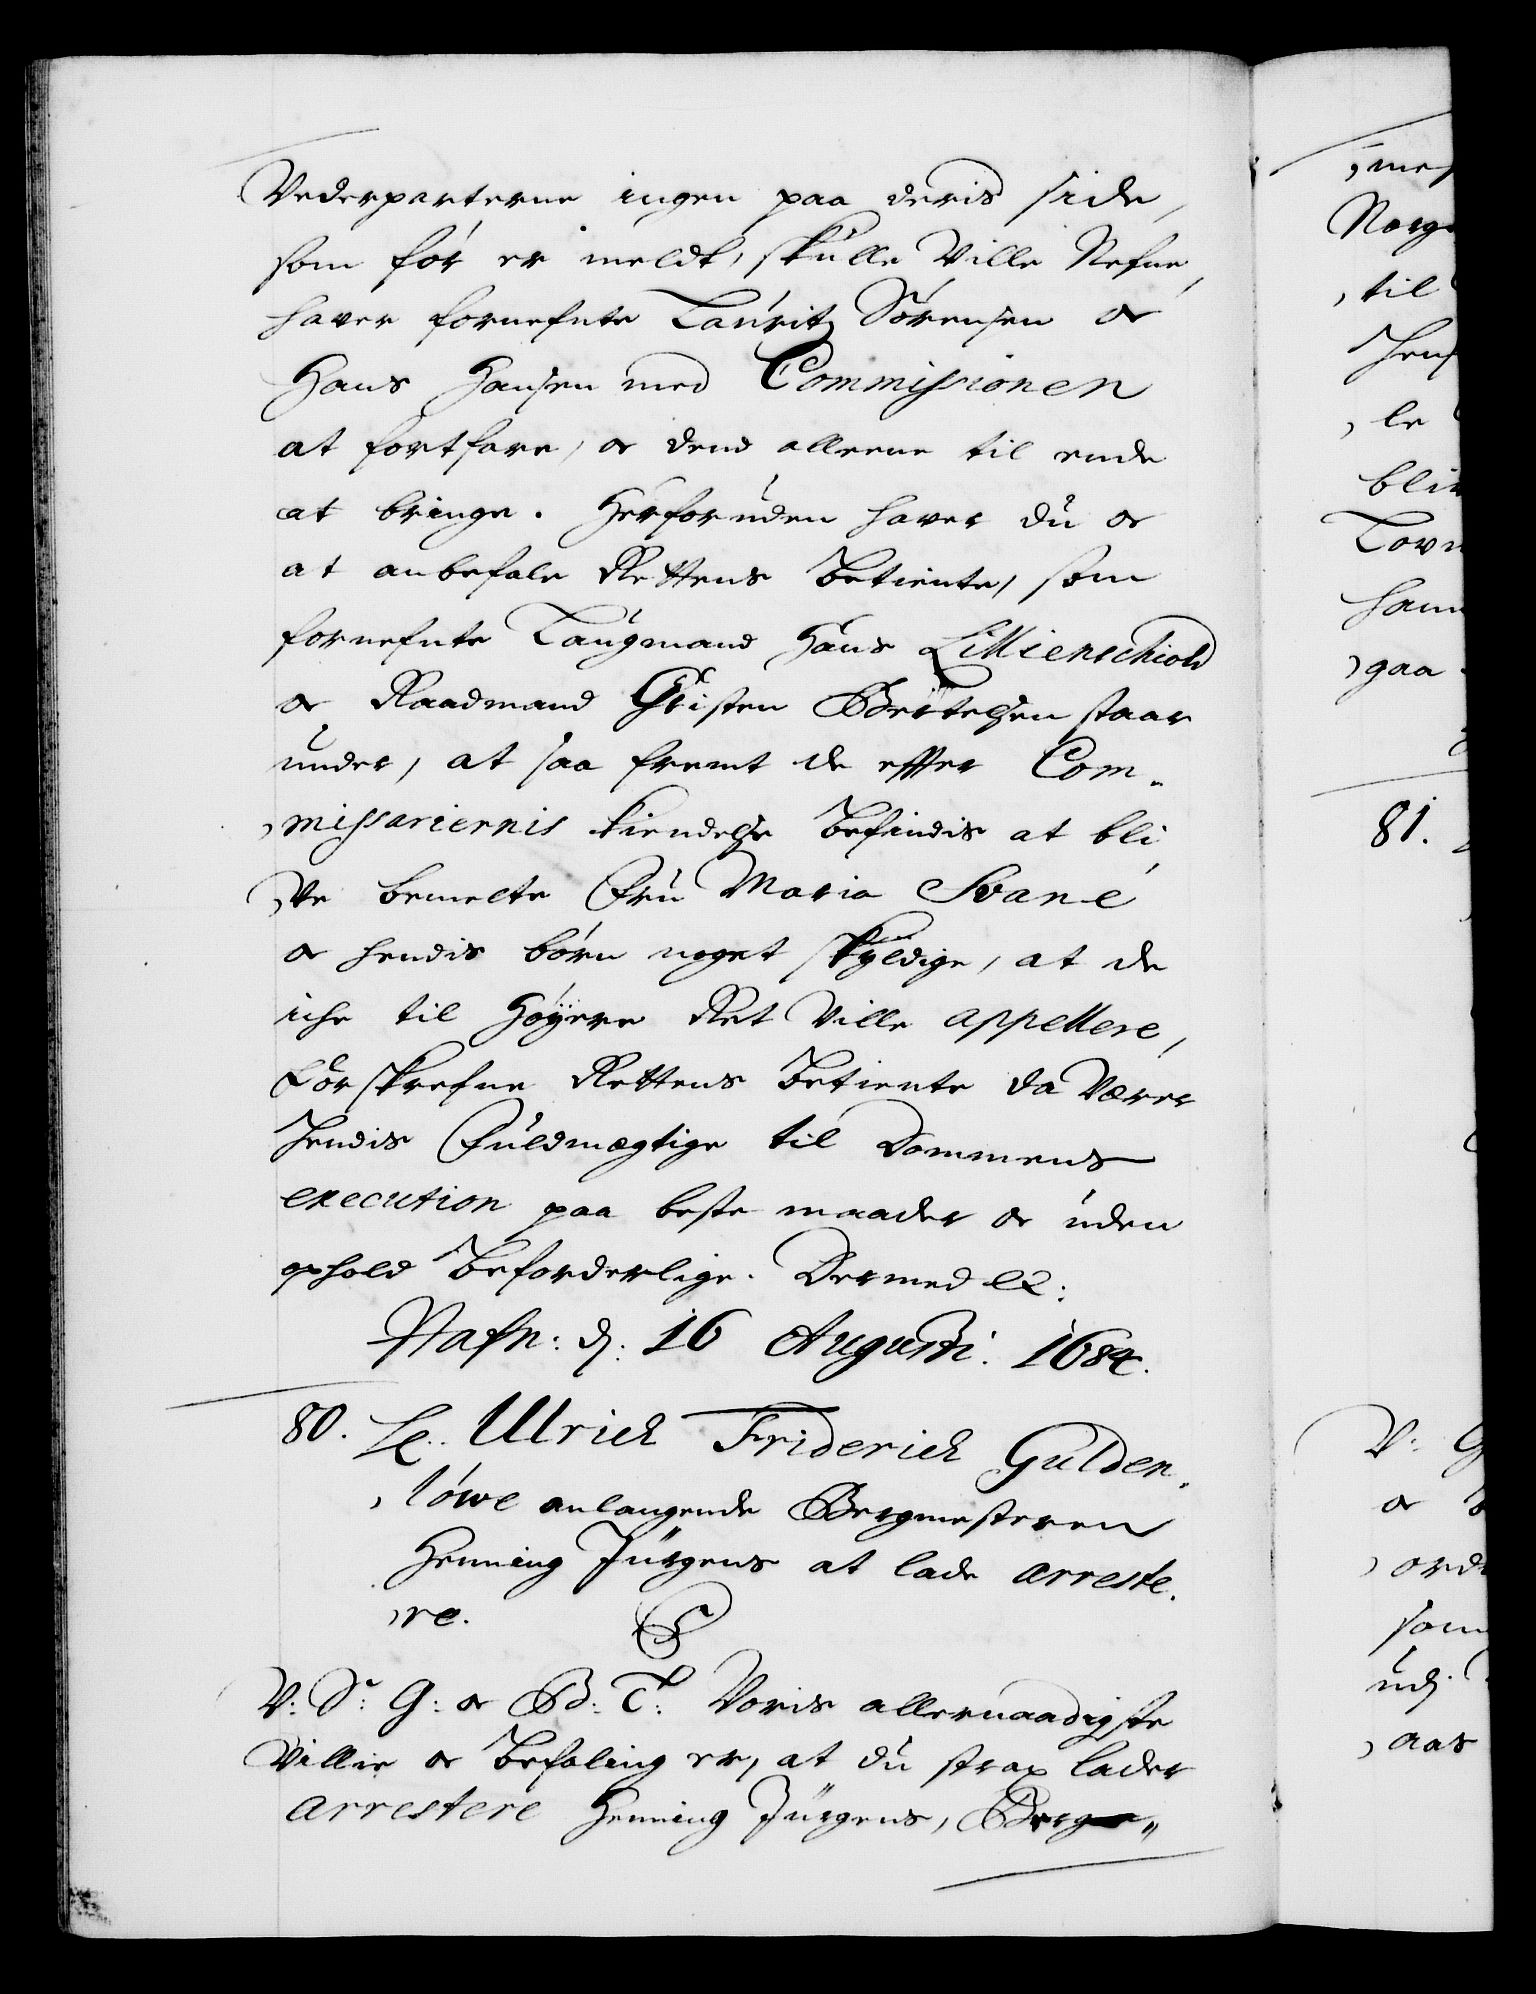 Vederparterne ingen paa deris side,
som før er meldt, skulle Ville Nefne,
haver fornefnte Lauritz Sørensen oc
Hans Hansen med Commissionen
at fortfare, oc dend alleene til ende
at bringe. Herforuden haver du oc
at anbefale Rettens Betiente, som
fornefnte Laugmand Hans Lillienschiold
oc Raadmand Christen Bertelsen staar
under, at saa fremt de efter Com-
missariernis kiendelse befindis at bli
ve bemelte Fru Maria Svane
oc hendis børn noget skyldige, at de
iche til Høyere Ret Ville appellere,
Forskrefne Rettens Betiente da Værer
hendis Fuldmegtige til Dommens
execution paa beste maader oc uden
ophold beforderlige. Dermed &c:
Hafn: d: 16 Augusti. 1684.
80. Til Ulrich Friderich Gulden-
løwe anlangende Bergmesteren
Henning Jürgens at lade arreste-
re. S
V: S: G: oc B: T: Voris allernaadigste
Villie oc Befaling er, at du strax lader
arrestere Henning Jürgens, Berg-
mes
Norge
til
le
bli
Lov
ham
gaa
81.
V: G
oc
ord
som
udj
aar